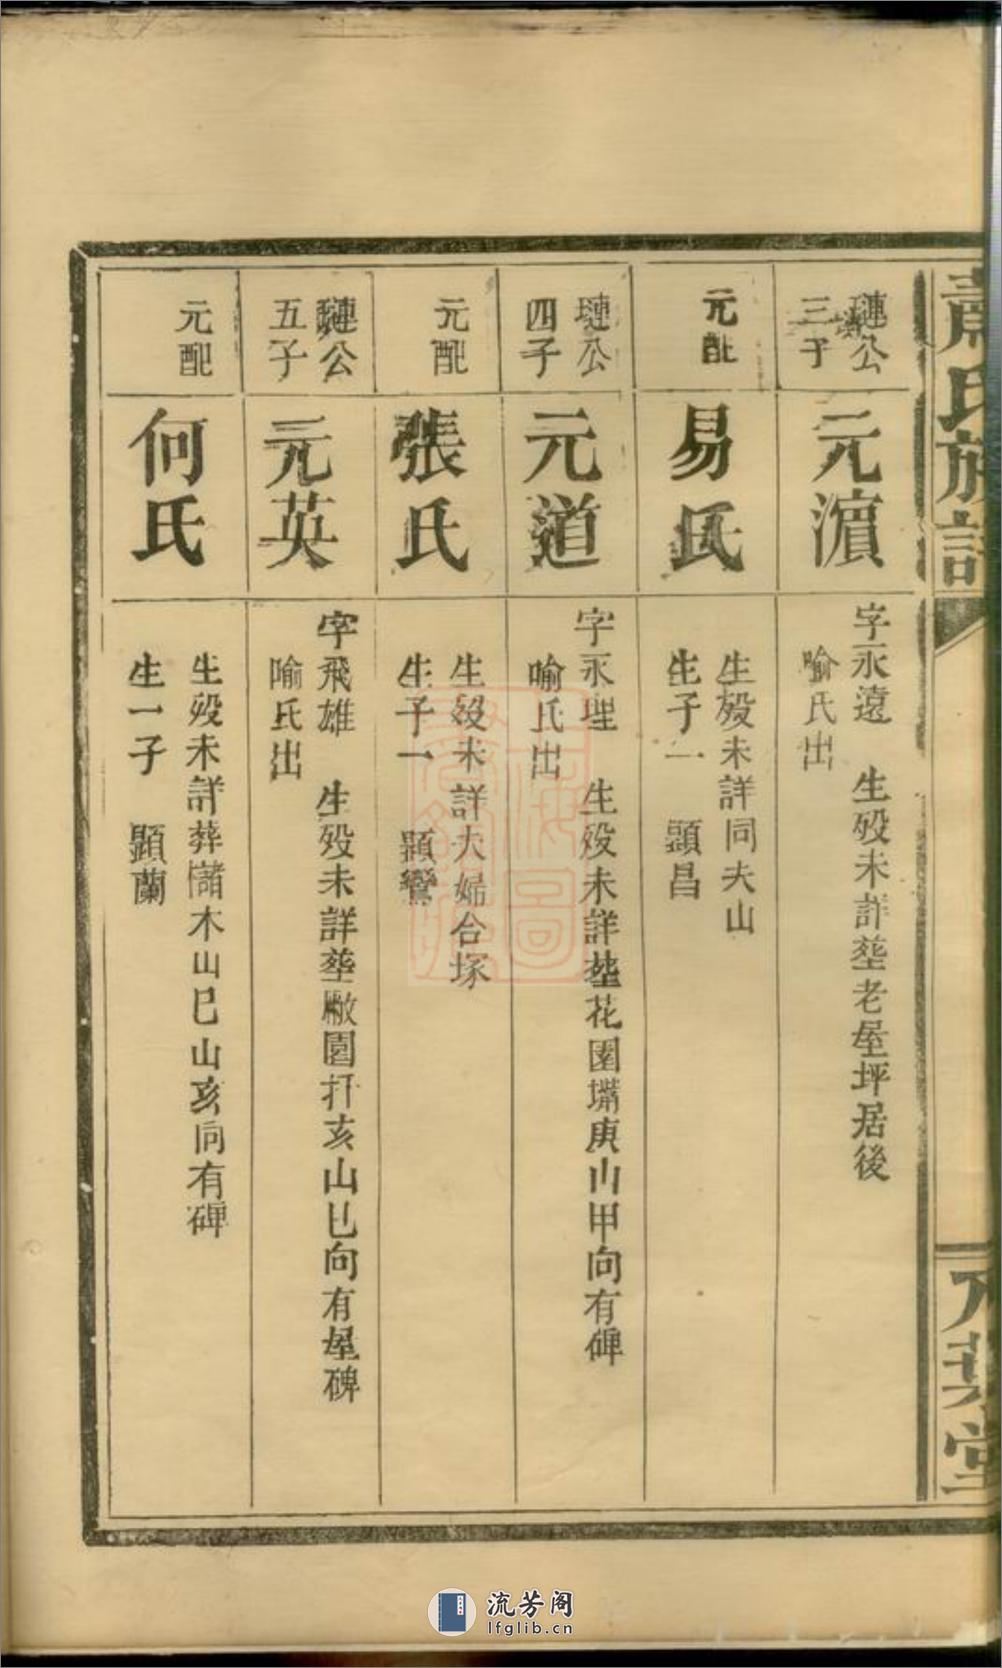 蕭氏族譜
八葉堂
璉公
三子
元濵
字永遠 生殁未詳塟老屋坪居後
喻氏出
元配
易氏
生殁未詳同夫山
生子一 顯昌
璉公
四子
元道
字永理 生殁未詳塟花園塝庚山甲向有碑
喻氏出
元配
張氏
生殁未詳夫婦合塚
生子一 顯鸞
璉公
五子
元英
字飛雄 生殁未詳塟廠園扦亥山巳向有屋碑
喻氏出
元配
何氏
生殁未詳葬儲木山巳山亥向有碑
生一子 顯蘭
流芳阁
lfglib.cn